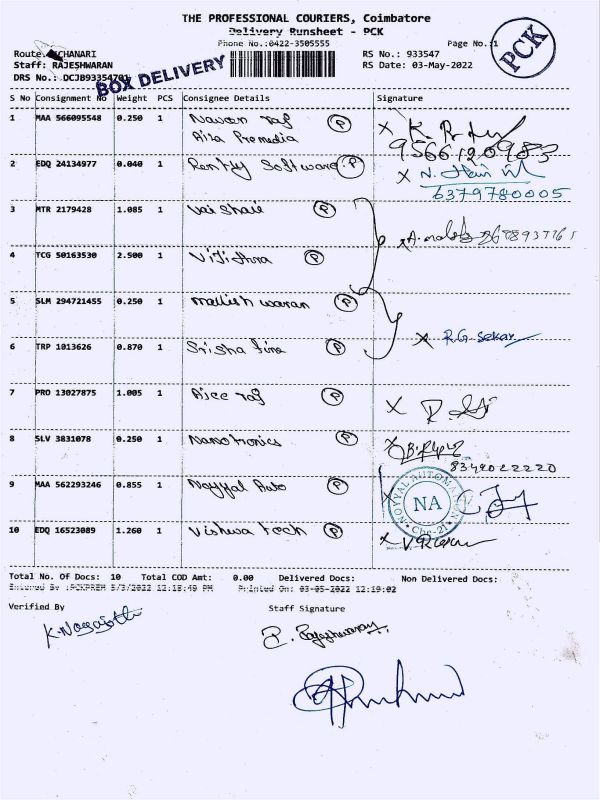 THE PROFESSIONAL COURIERS, Coimbatore
Delivery Runsheet - PCK
Phone No.:0422-3505555
Page No.:1
PCK
Route. CHANARI
RS No.: 933547
Staff: RAJESHWARAN
RS Date: 03-May-2022
DRS No.: DCJB93354701
BOX DELIVERY
S No Consignment No Weight PCS Consignee Details Signature
1 MAA 566095548 0.250 1 Naveen raj P
Promedia 9566120983
2 EDQ 24134977 0.040 1 Software P
6379780005
3 MTR 2179428 1.085 1 P
4 TCG 50163530 2.500 1 P
5 SLM 294721455 0.250 1 P
R.G. Sekar
6 TRP 1013626 0.870 1 P
7 PRO 13027875 1.005 1 P
8 SLV 3831078 0.250 1 Nanotronics P
8344022220
9 MAA 562293246 0.855 1 Noyyal Auto P
NOYYAL NA Cbe-21
10 EDQ 16523089 1.260 1 Vishwa tech P
Total No. Of Docs: 10 Total COD Amt: 0.00 Delivered Docs: Non Delivered Docs:
Entered By :PCKPREM 5/3/2022 12:18:49 PM Printed On: 03-05-2022 12:19:02
Verified By Staff Signature